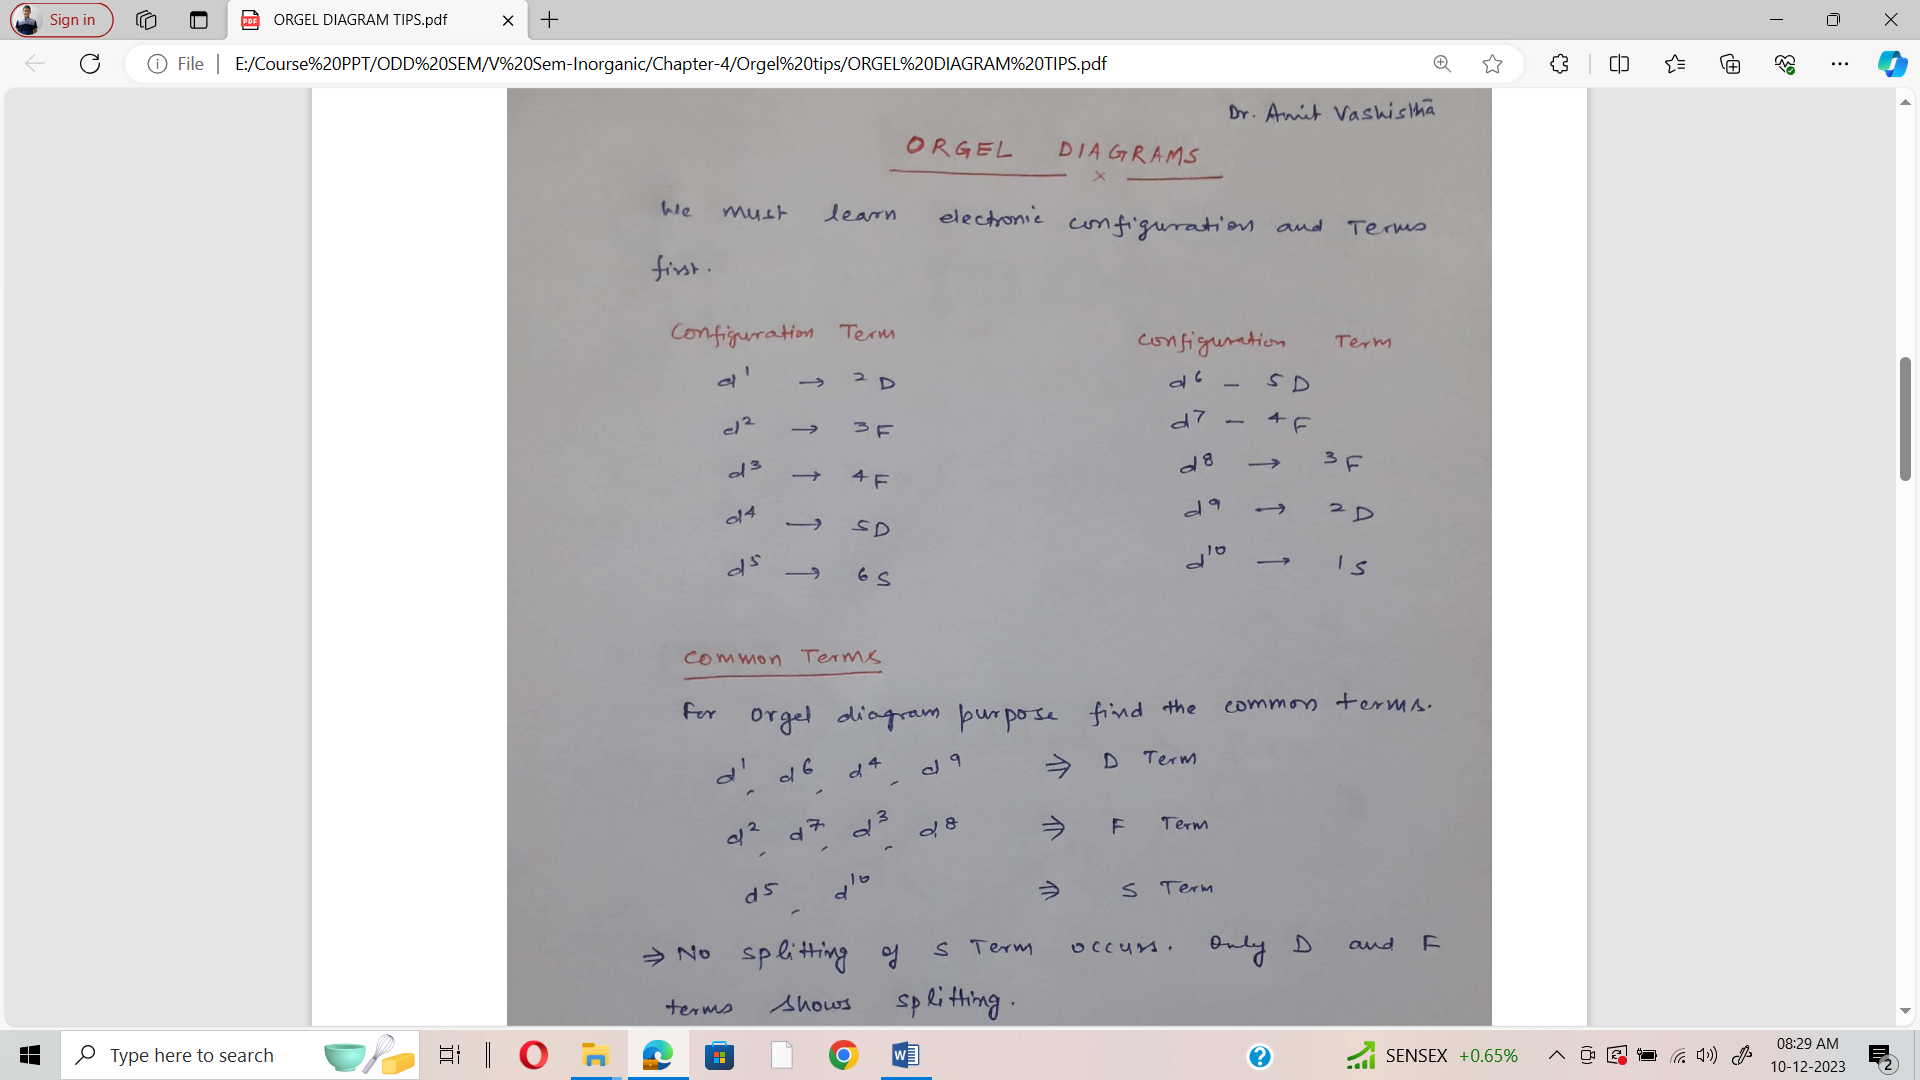 Sign in
ORGEL DIAGRAM TIPS.pdf
File
E:/Course%20PPT/ODD%20SEM/V%20Sem-Inorganic/Chapter-4/Orgel%20tips/ORGEL%20DIAGRAM%20TIPS.pdf
Dr. Amit Vashisthā
ORGEL DIAGRAMS
x
We must learn electronic configuration and Terms
first.
Configuration Term
d¹ → 2D
d² → 3F
d³ → 4F
d⁴ → 5D
d⁵ → 6S
Configuration Term
d⁶ – 5D
d⁷ – 4F
d⁸ → ³F
d⁹ → 2D
d¹⁰ → 1S
Common Terms
For Orgel diagram purpose find the common terms.
d¹, d⁶, d⁴, d⁹ ⇒ D Term
d², d⁷, d³, d⁸ ⇒ F Term
d⁵, d¹⁰ ⇒ S Term
⇒ No splitting of S Term occurs. Only D and F
terms shows splitting.
Type here to search
SENSEX +0.65%
08:29 AM
10-12-2023
2